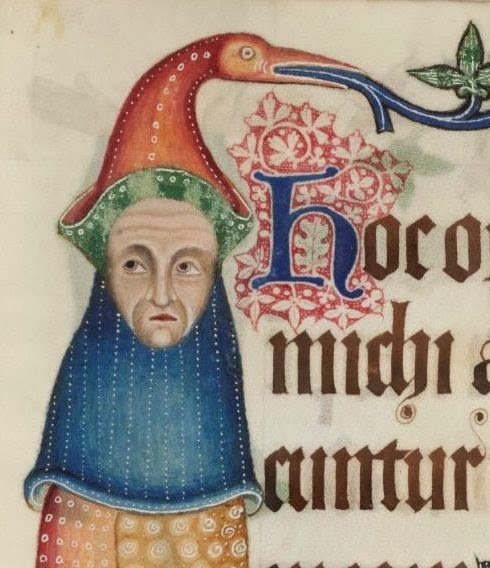 hoc o
michi a
cuntur